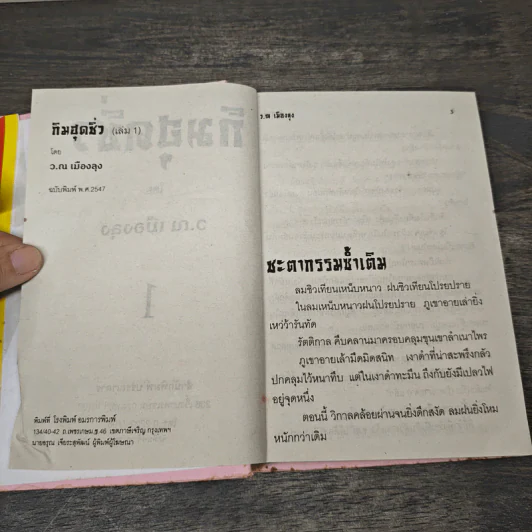 กิมฮุดชิ้ว (เล่ม 1)
โดย
ว.ณ เมืองลุง
ฉบับพิมพ์ พ.ศ.2547
พิมพ์ที่ โรงพิมพ์ อมรการพิมพ์
134/40-42 ถ.เพชรเกษม ซ.46 เขตภาษีเจริญ กรุงเทพฯ
นายอรุณ เจียระสุพัฒน์ ผู้พิมพ์ผู้โฆษณา
ว.ณ เมืองลุง
ชะตากรรมซ้ำเติม
ลมชิวเทียนเหน็บหนาว ฝนชิวเทียนโปรยปราย
ในลมเหน็บหนาวฝนโปรยปราย ภูเขาอายเล้ายิ่ง
เหว่ว้ารันทด
รัตติกาล คืบคลานมาครอบคลุมขุนเขาลำเนาไพร
ภูเขาอายเล้ามืดมิดสนิท เงาดำที่น่าสะพรึงกลัว
ปกคลุมไว้หนาทึบ แต่ในเงาดำทะมึน ถึงกับยังมีเปลวไฟ
อยู่จุดหนึ่ง
ตอนนี้ วิกาลคล้อยผ่านจนยิ่งดึกสงัด ลมฝนยิ่งโหม
หนักกว่าเดิม